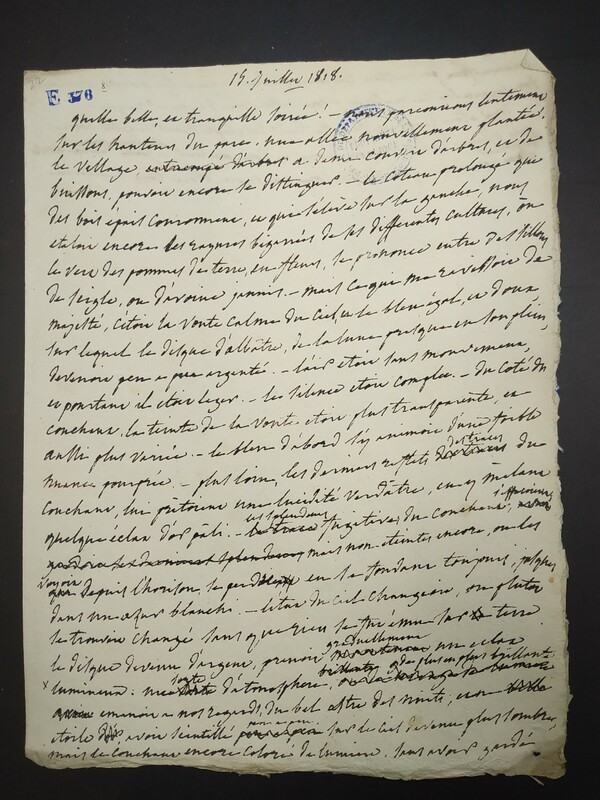 15. Juillet 1818.
E 376
quelle belle, et tranquille soirée! — nous parcourions lentement
sur les hauteurs du parc, une allée nouvellement plantée.
le village, d'arbres a demi couvert d'arbres, et de
buissons, pouvoit encore se distinguer. — le coteau prolongé que
des bois épais couronnent, et qui s'élève sur la gauche, nous
etaloit encore les rayures bigarrées de ses différentes cultures, où
le verd des pommes de terre, en fleurs, se prononce entre des sillons
de seigle, ou d'avoine jaunis. — mais ce qui me ravissoit de
majesté, c'étoit la voute calme du ciel, et le bleu égal, et doux
sur lequel le disque d'albâtre, de la lune presque en son plein,
devenoit peu a peu argenté. — l'air étoit sans mouvement,
et pourtant il étoit leger. — le silence étoit complet. — du coté du
couchant, la teinte de la voute étoit plus transparente, et
aussi plus variée. — le bleu d'abord s'y animoit d'une foible
nuance pourprée. — plus loin, les derniers reflets des traces du
couchant, lui prêtoient une lucidité verdâtre, en y mêlant
quelque éclat d'or pâli. — les splendeurs fugitives du couchant, s'effaçoient
mais non éteintes encore, on les
voyoit depuis l'horison, se perdre en se fondant toujours, jusques
dans un azur blanchi. — l'état du ciel changeoit, ou plutot
se trouvoit changé sans que rien se fut ému sur la terre
le disque devenu d'argent, prenoit graduellement un éclat
lumineux: une sorte d'atmosphère, brillante, et de plus en plus brillante
émanoit a nos regards, du bel astre des nuits, et une
étoile avoit scintillé peu a peu sur le ciel devenu plus sombre,
mais le couchant encore coloré de lumiere, sans avoir gardé